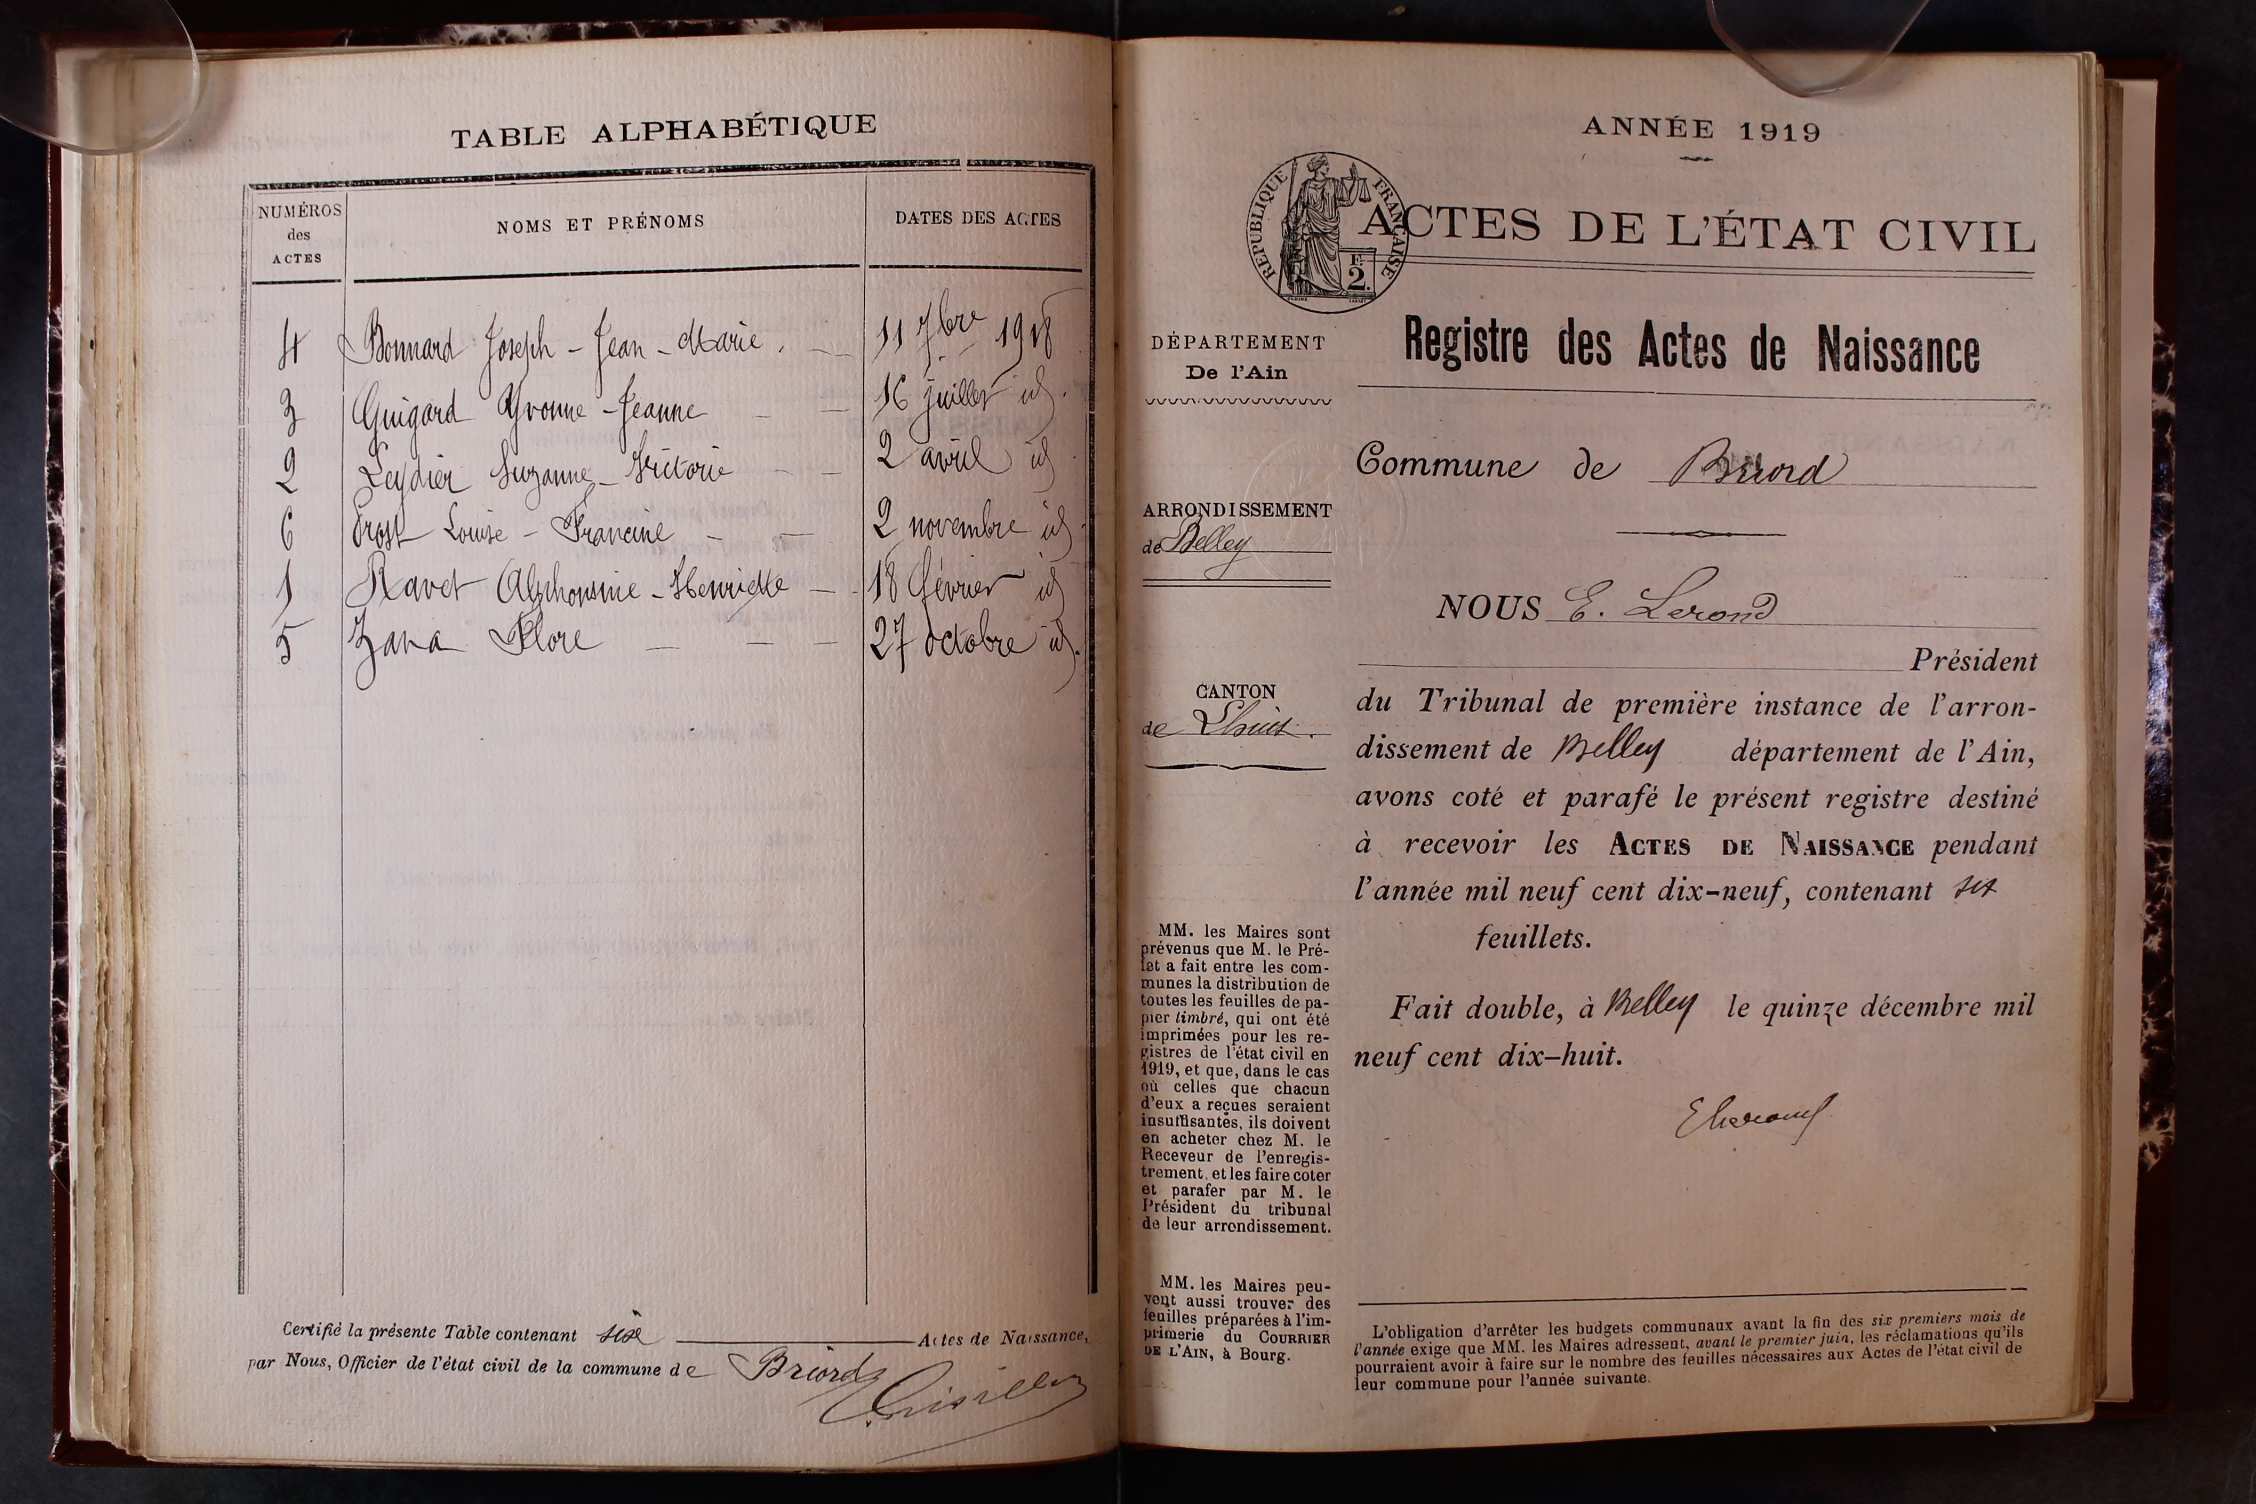 TABLE ALPHABÉTIQUE
NUMÉROS des ACTES
NOMS ET PRÉNOMS
DATES DES ACTES
4 Bonnard Joseph - Jean - Marie. — 11 7bre 1918
3 Guigard Yvonne - Jeanne — — 16 juillet id.
2 Leydier Suzanne - Victorie — — 2 avril id
6 Prost Louise - Francine — — 2 novembre id.
1 Ravet Alphonsine - Henriette — 18 février id
5 Zana Flore — — — 27 octobre id.
Certifié la présente Table contenant six Actes de Naissance,
par Nous, Officier de l'état civil de la commune de Briord
ANNÉE 1919
RÉPUBLIQUE FRANÇAISE
2.
ACTES DE L'ÉTAT CIVIL
DÉPARTEMENT
De l'Ain
ARRONDISSEMENT
de Belley
CANTON
de Lhuis.
MM. les Maires sont
prévenus que M. le Pré-
fet a fait entre les com-
munes la distribution de
toutes les feuilles de pa-
pier timbré, qui ont été
imprimées pour les re-
gistres de l'état civil en
1919, et que, dans le cas
où celles que chacun
d'eux a reçues seraient
insuffisantes, ils doivent
en acheter chez M. le
Receveur de l'enregis-
trement, et les faire coter
et parafer par M. le
Président du tribunal
de leur arrondissement.
MM. les Maires peu-
vent aussi trouver des
feuilles préparées à l'im-
primerie du COURRIER
DE L'AIN, à Bourg.
Registre des Actes de Naissance
Commune de Briord
NOUS E. Lerond
Président
du Tribunal de première instance de l'arron-
dissement de Belley département de l'Ain,
avons coté et parafé le présent registre destiné
à recevoir les ACTES DE NAISSANCE pendant
l'année mil neuf cent dix-neuf, contenant six
feuillets.
Fait double, à Belley le quinze décembre mil
neuf cent dix-huit.
ELerond
L'obligation d'arrêter les budgets communaux avant la fin des six premiers mois de
l'année exige que MM. les Maires adressent, avant le premier juin, les réclamations qu'ils
pourraient avoir à faire sur le nombre des feuilles nécessaires aux Actes de l'état civil de
leur commune pour l'année suivante.